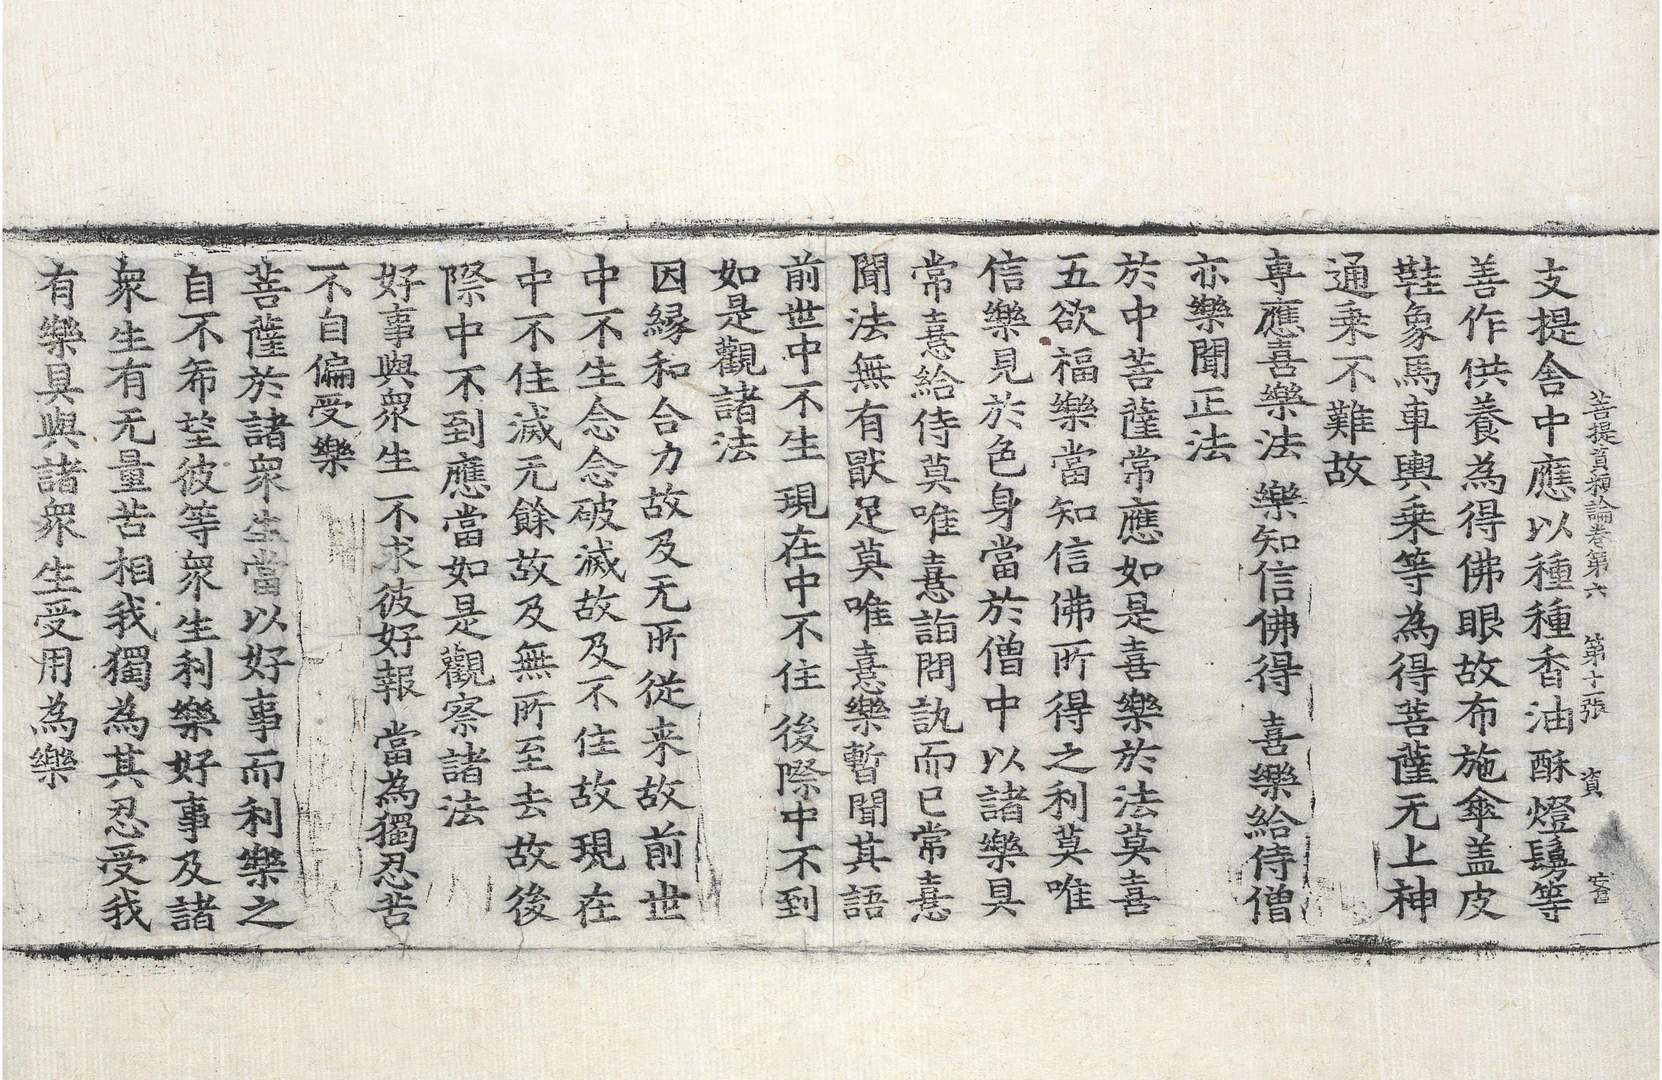 菩提資糧論卷第六 第十二張 資
支提舍中應以種種香油酥燈鬘等
善作供養為得佛眼故布施傘盖皮
鞋象馬車輿乗等為得菩薩无上神
通乗不難故
專應喜樂法 樂知信佛得 喜樂給侍僧
亦樂聞正法
於中菩薩常應如是喜樂於法莫喜
五欲福樂當知信佛所得之利莫唯
信樂見於色身當於僧中以諸樂具
常憙給侍莫唯憙詣問訊而已常憙
聞法無有猒足莫唯憙樂暫聞其語
前世中不生 現在中不住 後際中不到
如是觀諸法
因緣和合力故及无所從来故前世
中不生念念破滅故及不住故現在
中不住滅无餘故及無所至去故後
際中不到應當如是觀察諸法
好事與衆生 不求彼好報 當為獨忍苦
不自偏受樂
菩薩於諸衆生當以好事而利樂之
自不希望彼等衆生利樂好事及諸
衆生有无量苦相我獨為其忍受我
有樂具與諸衆生受用為樂